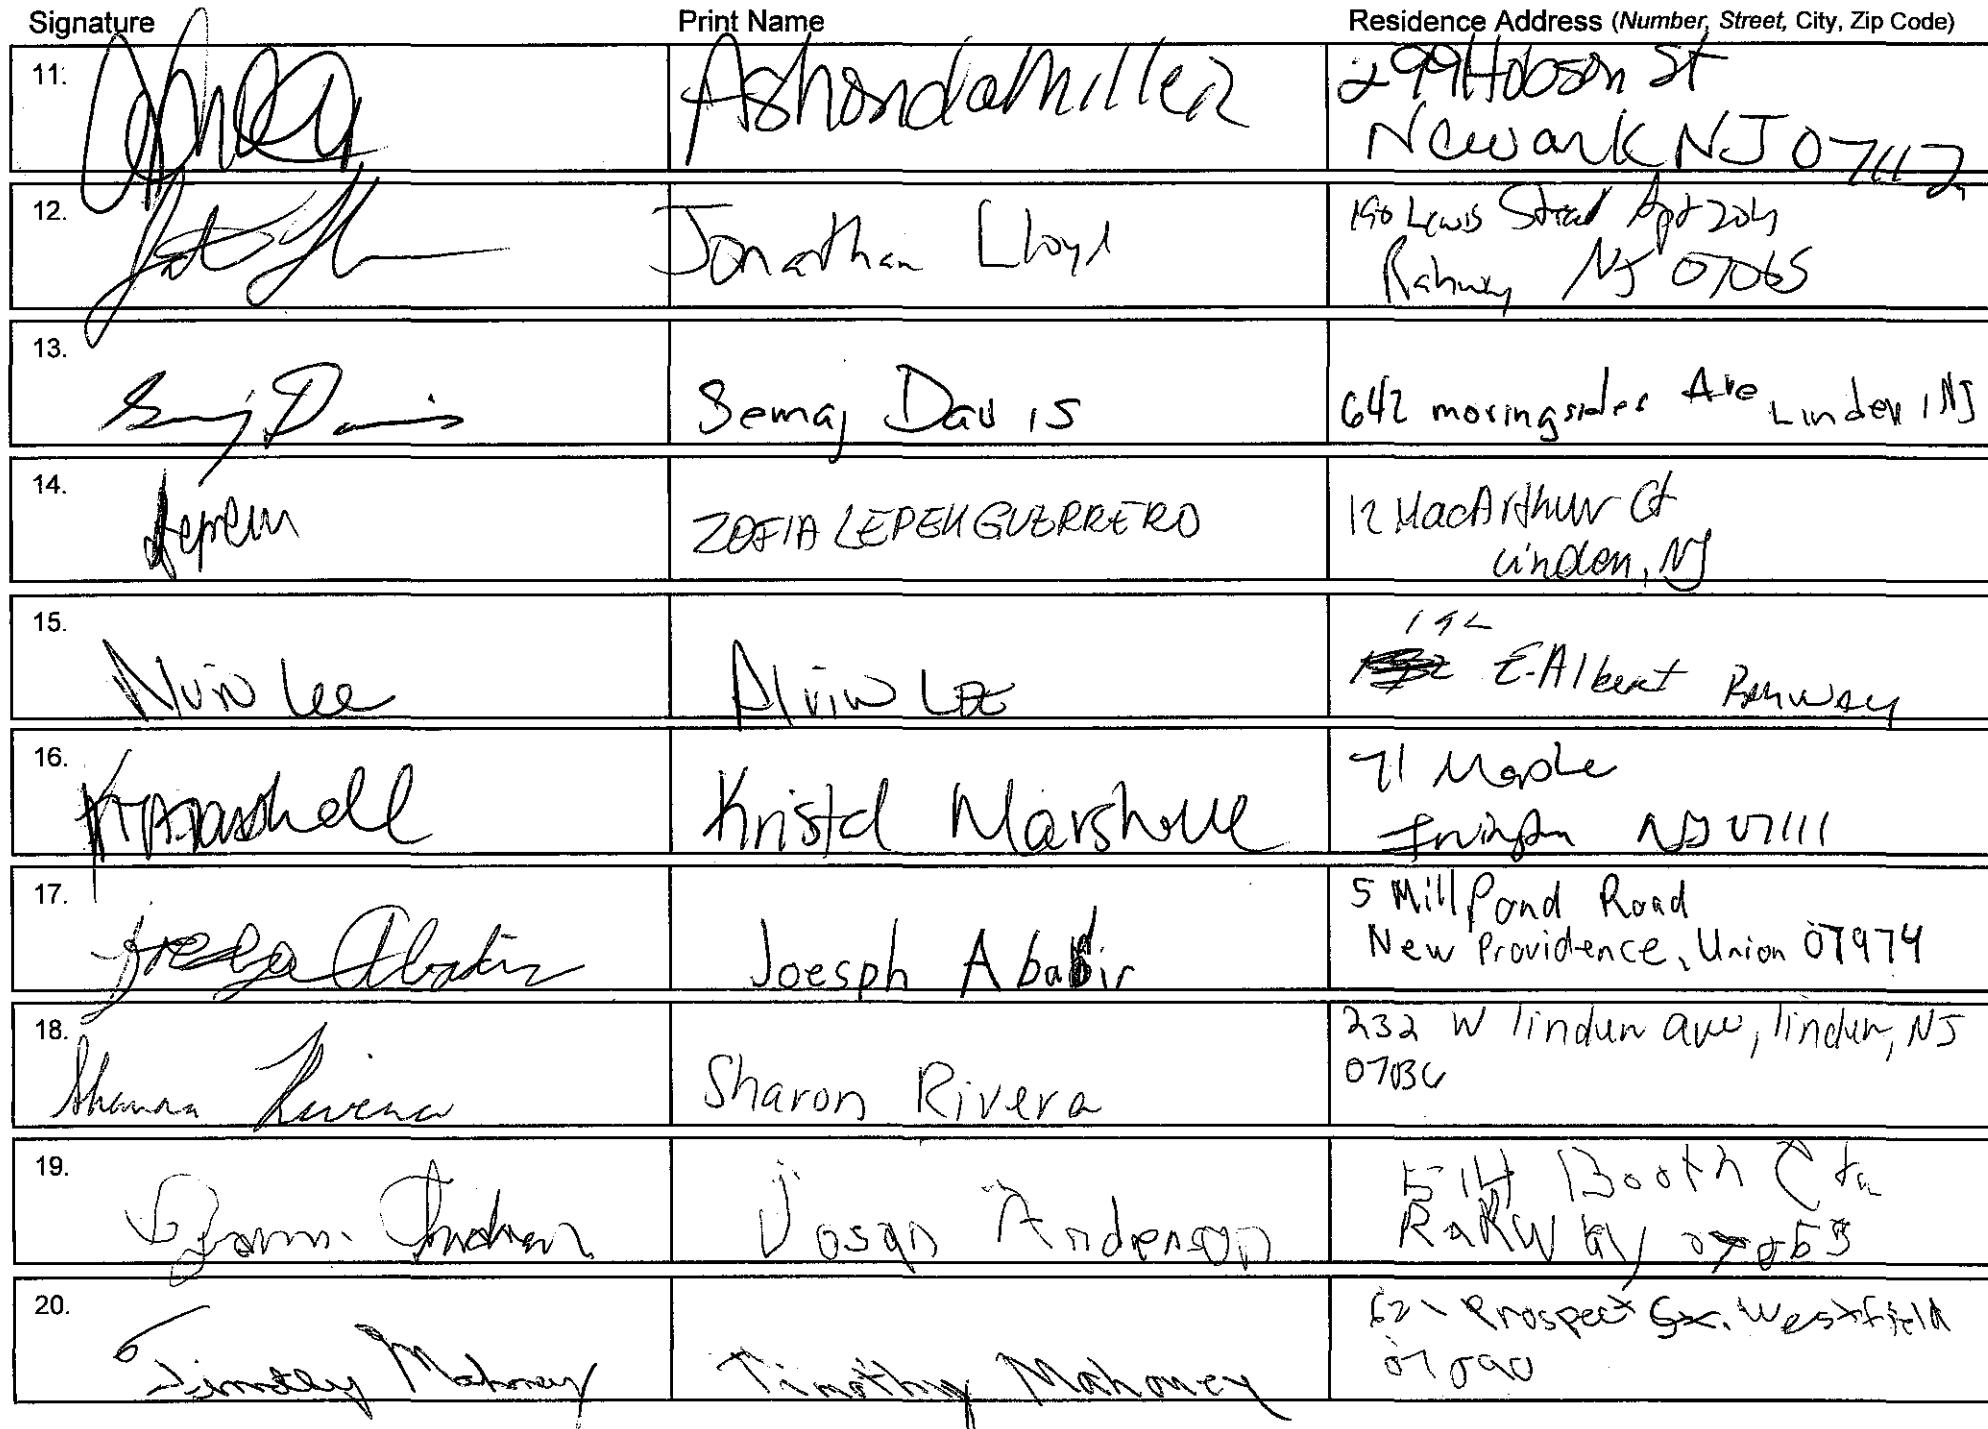 Signature Print Name Residence Address (Number, Street, City, Zip Code)
11. Ashonda Miller 299 Hobson St
Newark NJ 07112
12. Jonathan Lloyd 190 Lewis Street Apt 204
Rahway NJ 07065
13. Semaj Davis 642 moringsides Ave Linden, NJ
14. ZOFIA LEPEK GUERRERO 12 MacArthur Ct
Linden, NJ
15. Alvin Lee Alvin LEE 192
E. Albert Rahway
16. KMarshall Kristal Marshall 71 Maple
Irvington NJ 07111
17. Joesph Ababir 5 Mill Pond Road
New Providence, Union 07974
18. Sharon Rivera Sharon Rivera 232 W linden ave, linden, NJ
07036
19. Anderson 514 Booth
20. Timothy Mahoney Timothy Mahoney Prospect St. Westfield
07090